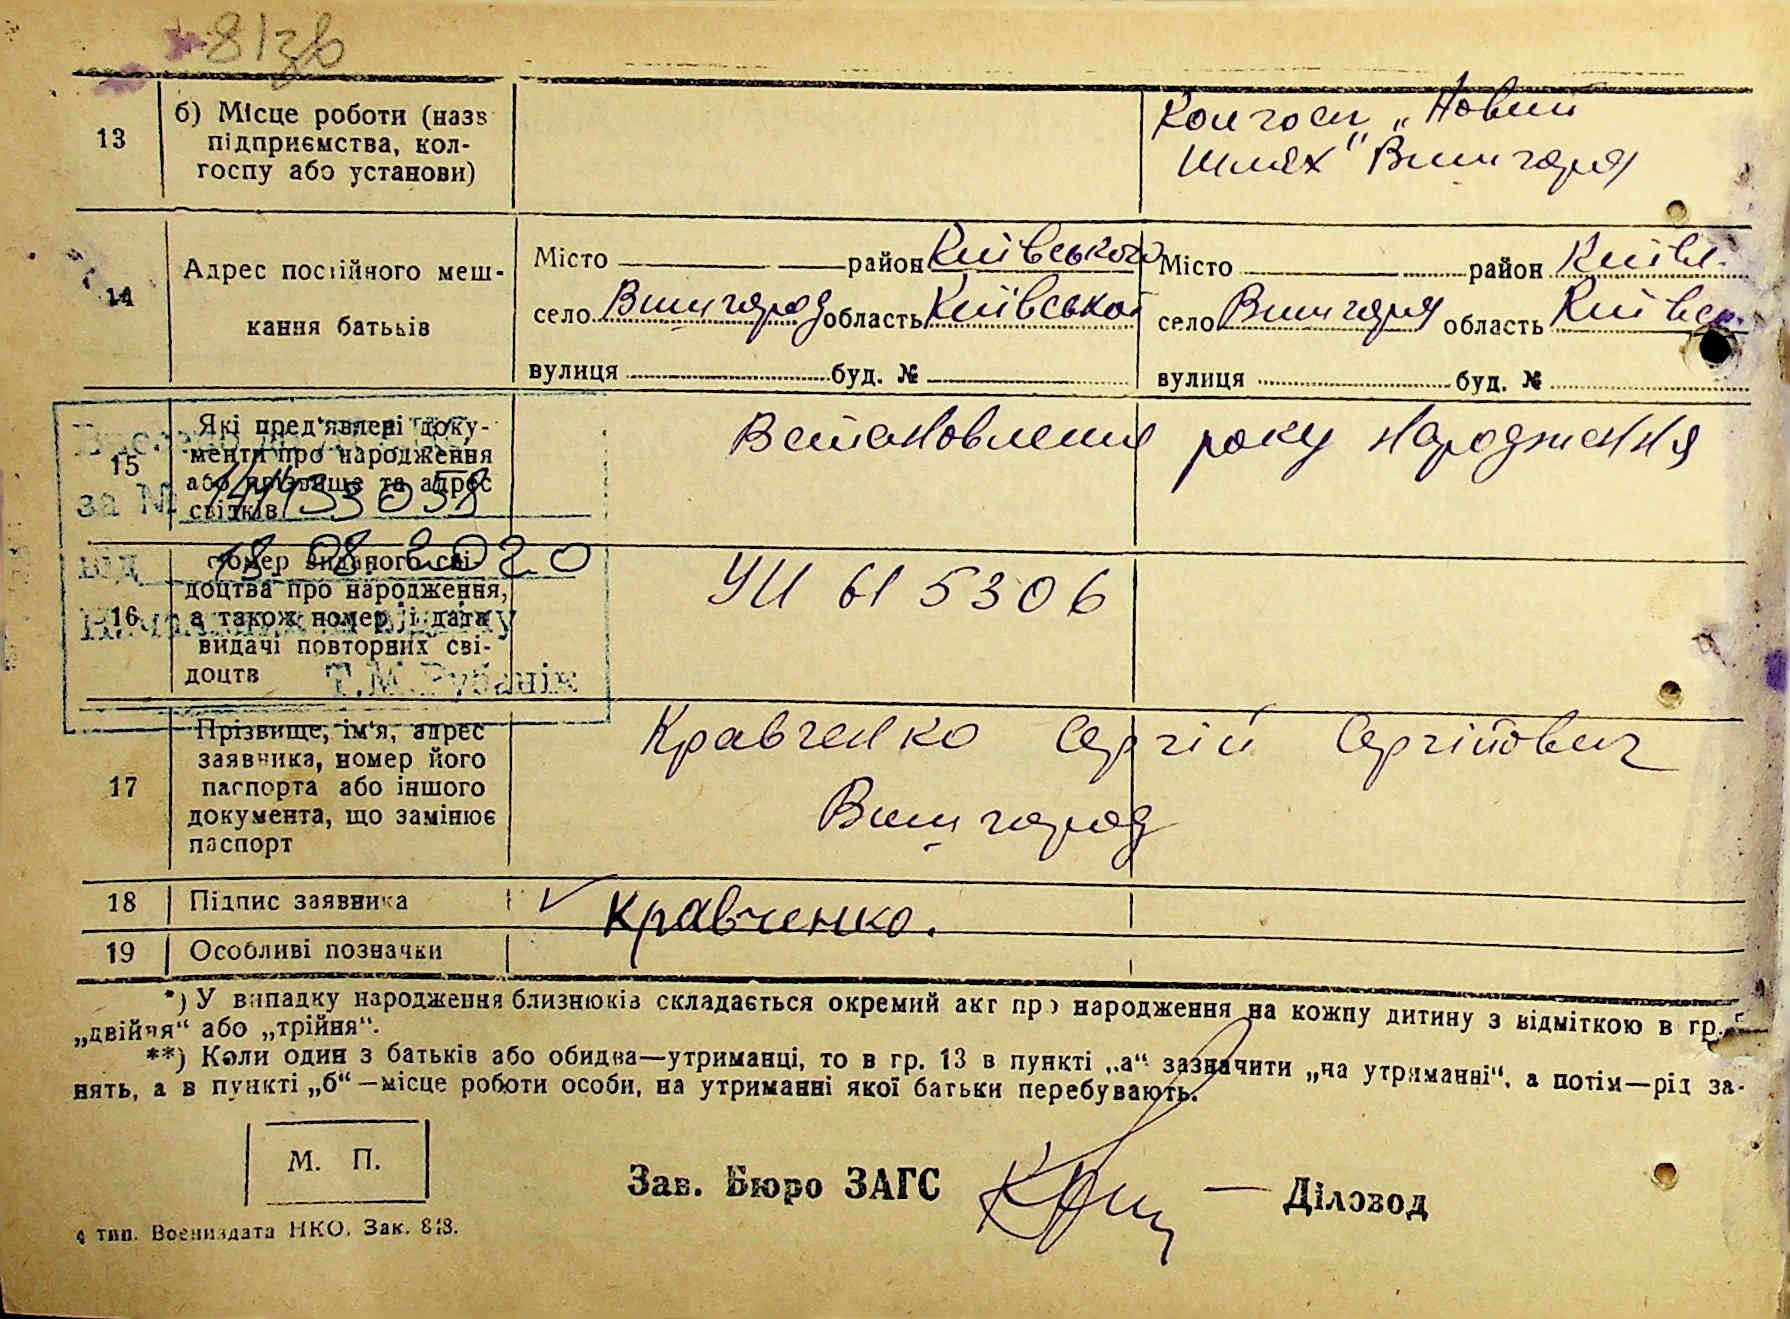 81зв
13
б) Місце роботи (назв
підприємства, кол-
госпу або установи)
Колгосп „Новий
Шлях" Вишгород
14
Адрес постійного меш-
кання батьків
Місто район Київського
село Вишгород область Київської
вулиця буд. №
Місто район Київс.
село Вишгород область Київськ.
вулиця буд. №
15
Які пред'явлені доку-
менти про народження
або прізвище та адрес
свідків
Встановлення року народження
за №
від 18.08.2020
16
номер виданого сві-
доцтва про народження,
а також номер і дата
видачі повторних сві-
доцтв
УИ 615306
Т.М.
17
Прізвище, ім'я, адрес
заявника, номер його
паспорта або іншого
документа, що замінює
паспорт
Кравченко Сергій Сергійович
Вишгород
18
Підпис заявника
Кравченко.
19
Особливі позначки
*) У випадку народження близнюків складається окремий акт про народження на кожну дитину з відміткою в гр.
„двійня“ або „трійня“.
**) Коли один з батьків або обидва—утриманці, то в гр. 13 в пункті „а“ зазначити „на утриманні“, а потім—рід за-
нять, а в пункті „б“—місце роботи особи, на утриманні якої батьки перебувають.
М. П.
Зав. Бюро ЗАГС
Діловод
4 тип. Воениздата НКО. Зак. 818.